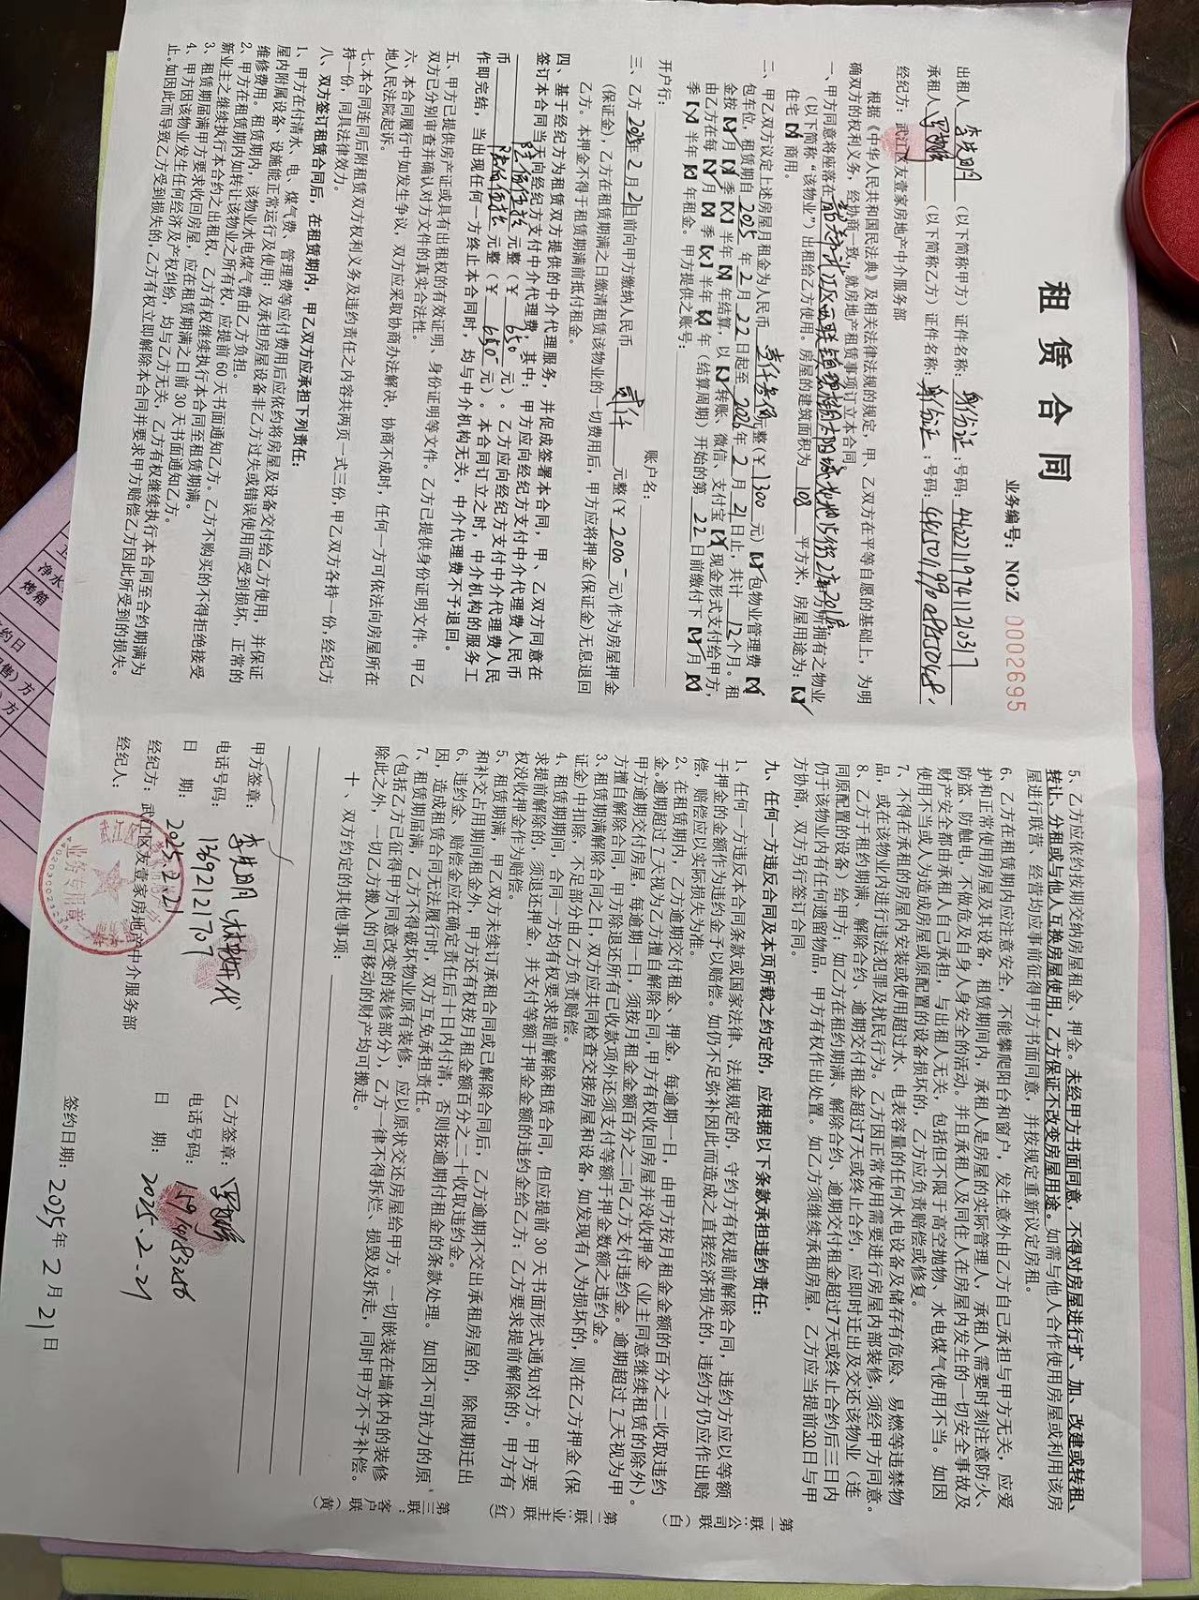 租赁合同
业务编号：NO:Z 0002695
出租人 李先明 （以下简称甲方）证件名称：身份证；号码：
承租人 （以下简称乙方）证件名称：身份证；号码：
经纪方：武江区友壹家房地产中介服务部
根据《中华人民共和国民法典》及相关法律法规的规定，甲、乙双方在平等自愿的基础上，为明
确双方的权利义务，经协商一致，就房地产租赁事项订立本合同
一、甲方同意将座落在 方所拥有之物业
（以下简称“该物业”）出租给乙方使用。房屋的建筑面积为 108 平方米，房屋用途为：【✓】
住宅【 】商用。
二、甲乙双方议定上述房屋月租金为人民币 壹仟叁佰 元整（￥1300 元）包物业管理费
包车位，租赁期自 2025 年 2 月 22 日起至 2026 年 2 月 21 日止，共计 12 个月。租
金按 月 季 半年 年结算，以 转账、微信、支付宝 现金形式支付给甲方，
由乙方在每 月 季 半年 年（结算周期）开始的第 22 日前缴付下 月
季 半年 年租金，甲方提供之账号：
开户行： 账户名：
三、乙方 2025年 2 月 21日前向甲方缴纳人民币 贰仟 元整（￥2000- 元）作为房屋押金
（保证金），乙方在租赁期满之日缴清租赁该物业的一切费用后，甲方应将押金（保证金）无息退回
乙方。本押金不得于租赁期满前抵付租金。
四、基于经纪方为租赁双方提供的中介代理服务，并促成签署本合同，甲、乙双方同意在
签订本合同当天向经纪方支付中介代理费，其中：甲方应向经纪方支付中介代理费人民币
陆佰伍拾 元整（￥650 元）。乙方应向经纪方支付中介代理费人民
币 陆佰伍拾 元整（￥650- 元）。本合同订立之时，中介机构的服务工
作即完结，当出现任何一方终止本合同时，均与中介机构无关，中介代理费不予退回。
五、甲方已提供房产证或具有出租权的有效证明、身份证明等文件。乙方已提供身份证明文件。甲乙
双方已分别审查并确认对方文件的真实合法性。
六、本合同履行中如发生争议，双方应采取协商办法解决，协商不成时，任何一方可依法向房屋所在
地人民法院起诉。
七、本合同连同后附租赁双方权利义务及违约责任之内容共两页一式三份，甲乙双方各持一份，经纪方
持一份，同具法律效力。
八、双方签订租赁合同后，在租赁期内，甲乙双方应承担下列责任：
1、甲方在付清水、电、煤气费、管理费等应付费用后应依约将房屋及设备交付给乙方使用，并保证
屋内附属设备、设施能正常运行及使用；及承担房屋设备非乙方过失或错误使用而受到损坏，正常的
维修费用。租赁期内，该物业水电煤气费由乙方负担。
2、甲方在租赁期内如转让该物业之所有权，应提前 60 天书面通知乙方。乙方不购买的不得拒绝接受
新业主之继续执行本合约之出租权，乙方有权继续执行本合同至租赁期满。
3、租赁期届满甲方要求收回房屋，应在租赁期满之日前 30 天书面通知乙方。
4、甲方因该物业发生任何经济及产权纠纷，均与乙方无关，乙方有权继续执行本合同至合约期满为
止。如因此而导致乙方受到损失的，乙方有权立即解除本合同并要求甲方赔偿乙方因此所受到的损失。
5、乙方应依约按期交纳房屋租金、押金。未经甲方书面同意，不得对房屋进行扩、加、改建或转租、
转让、分租或与他人互换房屋使用，乙方保证不改变房屋用途。如需与他人合作使用房屋或利用该房
屋进行联营、经营均应事前征得甲方书面同意，并按规定重新议定房租。
6、乙方在租赁期内应注意安全，不能攀爬阳台和窗户，发生意外由乙方自己承担与甲方无关，应爱
护和正常使用房屋及其设备，租赁期间内，承租人是房屋的实际管理人，承租人需要时刻注意防火、
防盗、防触电，不做危及自身人身安全的活动。并且承租人及同住人在房屋内发生的一切安全事故及
财产安全都由承租人自己承担，与出租人无关，包括但不限于高空抛物、水电煤气使用不当。如因
使用不当或人为造成房屋或原配置的设备损坏的，乙方应负责赔偿或修复。
7、不得在承租的房屋内安装或使用超过水、电表容量的任何水电设备及储存有危险、易燃等违禁物
品，或在该物业内进行违法犯罪及扰民行为。乙方因正常使用需要进行房屋内部装修，须经甲方同意。
8、乙方于租约期满、解除合约、逾期交付租金超过7天或终止合约，应即时迁出及交还该物业（连
同原配置的设备）给甲方；如乙方在租约期满、解除合约、逾期交付租金超过7天或终止合约后三日内
仍于该物业内有任何遗留物品，甲方有权作出处置。如乙方须继续承租房屋，乙方应当提前30日与甲
方协商，双方另行签订合同。
九、任何一方违反合同及本页所载之约定的，应根据以下条款承担违约责任：
1、任何一方违反本合同条款或国家法律、法规规定的，守约方有权提前解除合同，违约方应以等额
于押金的金额作为违约金予以赔偿。如仍不足弥补因此而造成之直接经济损失的，违约方仍应作出赔
偿，赔偿应以实际损失为准。
2、在租赁期内，乙方逾期交付租金、押金，每逾期一日，由甲方按月租金金额的百分之二收取违约
金。逾期超过 7 天视为乙方擅自解除合同，甲方有权收回房屋并没收押金（业主同意继续租赁的除外）。
甲方逾期交付房屋，每逾期一日，须按月租金金额百分之二向乙方支付违约金。逾期超过 7 天视为甲
方擅自解除合同，甲方除退还所有已收款项外还须支付等额于押金数额之违约金。
3、租赁期满解除合同之日，双方应共同检查交接房屋和设备，如发现有人为损坏的，则在乙方押金（保
证金）中扣除，不足部分由乙方负责赔偿。
4、租赁期期间，合同一方均有权要求提前解除租赁合同，但应提前 30 天书面形式通知对方。甲方要
求提前解除的，须退还押金，并支付等额于押金金额的违约金给乙方；乙方要求提前解除的，甲方有
权没收押金作为赔偿。
5、租赁期满，甲乙双方未续订承租合同或已解除合同后，乙方逾期不交出承租房屋的，除限期迁出
和补交占用期间租金外，甲方还有权按月租金额百分之二十收取违约金。
6、违约金、赔偿金应在确定责任后十日内付清，否则按逾期付租金的条款处理。如因不可抗力的原
因，造成租赁合同无法履行时，双方互免承担责任。
7、租赁期届满，乙方不得破坏物业原有装修，应以原状交还房屋给甲方。一切嵌装在墙体内的装修
（包括乙方已征得甲方同意改变的装修部分），乙方一律不得拆烂、损毁及拆走，同时甲方不予补偿。
除此之外，一切乙方搬入的可移动的财产均可搬走。
十、双方约定的其他事项：
甲方签章： 李先明 乙方签章：
电话号码： 13692121707 电话号码：
日 期： 2025.2.21 日 期： 2025.2.21
经纪方：武江区友壹家房地产中介服务部
经纪人： 签约日期：2025年 2 月 21日
业务专用章
第一联：公司联（白）
第二联：业主联（红）
第三联：客户联（黄）
净水
烤箱
约日
售）方
）方